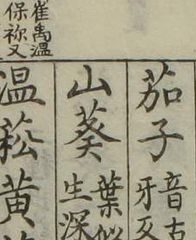 茄子
音古
牙反
山葵
葉似
生深
崔禹温
保祢又
温菘黄